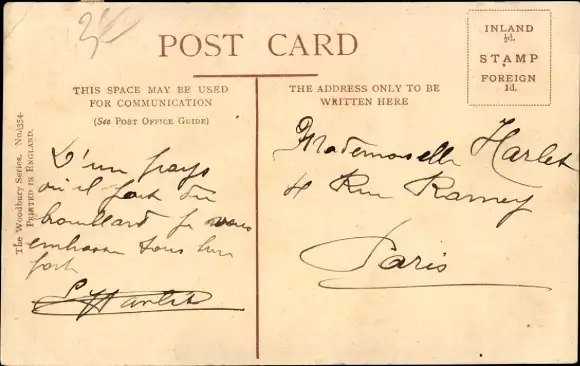 3
POST CARD
THIS SPACE MAY BE USED
FOR COMMUNICATION
(See POST OFFICE GUIDE)
THE ADDRESS ONLY TO BE
WRITTEN HERE
INLAND
½d.
STAMP
FOREIGN
1d.
The Woodbury Series. No. 354.
PRINTED IN ENGLAND.
D'un pays
où il fait du
brouillard je vous
embrasse tous bien
fort
Harlet
Mademoiselle Harlet
4 Rue Ramey
Paris